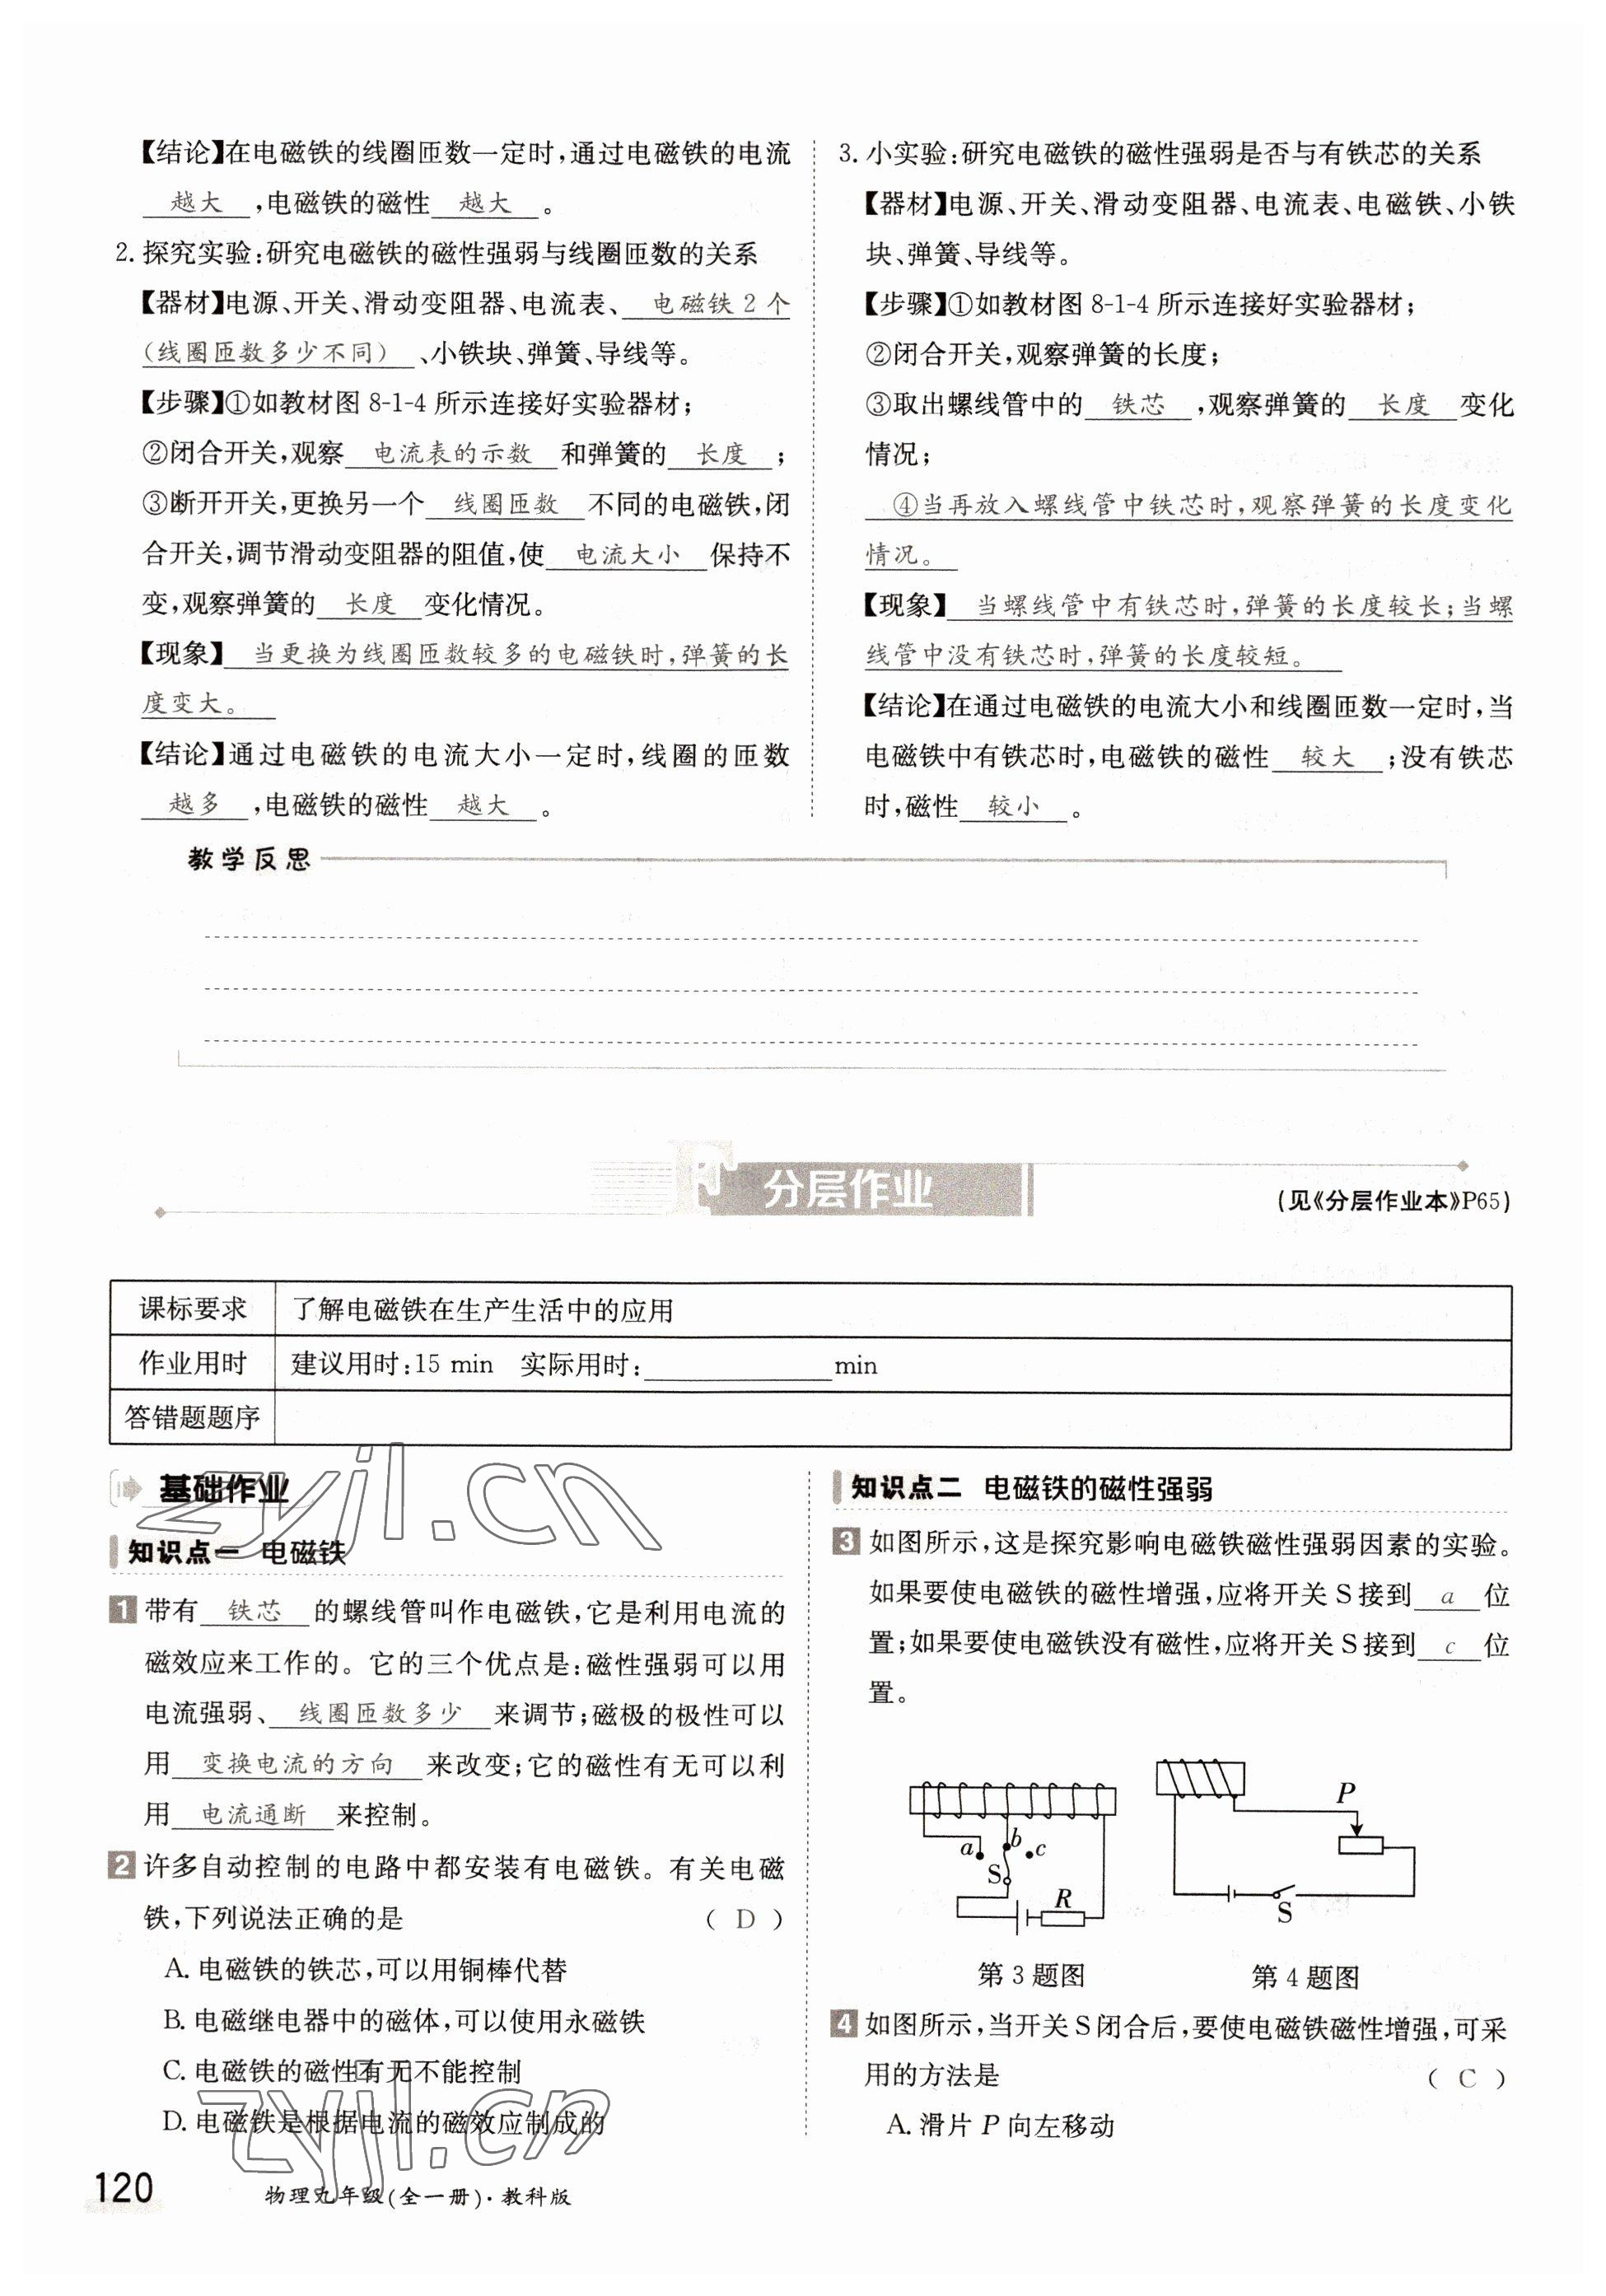 【结论】在电磁铁的线圈匝数一定时,通过电磁铁的电流
越大,电磁铁的磁性 越大 。
2. 探究实验:研究电磁铁的磁性强弱与线圈匝数的关系
【器材】电源、开关、滑动变阻器、电流表、 电磁铁 2 个
(线圈匝数多少不同) 、小铁块、弹簧、导线等。
【步骤】①如教材图 8-1-4 所示连接好实验器材;
②闭合开关,观察 电流表的示数 和弹簧的 长度 ;
③断开开关,更换另一个 线圈匝数 不同的电磁铁,闭
合开关,调节滑动变阻器的阻值,使 电流大小 保持不
变,观察弹簧的 长度 变化情况。
【现象】 当更换为线圈匝数较多的电磁铁时,弹簧的长
度变大。
【结论】通过电磁铁的电流大小一定时,线圈的匝数
越多 ,电磁铁的磁性 越大 。
3. 小实验:研究电磁铁的磁性强弱是否与有铁芯的关系
【器材】电源、开关、滑动变阻器、电流表、电磁铁、小铁
块、弹簧、导线等。
【步骤】①如教材图 8-1-4 所示连接好实验器材;
②闭合开关,观察弹簧的长度;
③取出螺线管中的 铁芯 ,观察弹簧的 长度 变化
情况;
④当再放入螺线管中铁芯时,观察弹簧的长度变化
情况。
【现象】 当螺线管中有铁芯时,弹簧的长度较长;当螺
线管中没有铁芯时,弹簧的长度较短。
【结论】在通过电磁铁的电流大小和线圈匝数一定时,当
电磁铁中有铁芯时,电磁铁的磁性 较大 ;没有铁芯
时,磁性 较小 。
教学反思
F 分层作业
(见《分层作业本》P65)
课标要求 了解电磁铁在生产生活中的应用
作业用时 建议用时:15 min 实际用时: min
答错题题序
基础作业
知识点一 电磁铁
1 带有 铁芯 的螺线管叫作电磁铁,它是利用电流的
磁效应来工作的。它的三个优点是:磁性强弱可以用
电流强弱、 线圈匝数多少 来调节;磁极的极性可以
用 变换电流的方向 来改变;它的磁性有无可以利
用 电流通断 来控制。
2 许多自动控制的电路中都安装有电磁铁。有关电磁
铁,下列说法正确的是 ( D )
A. 电磁铁的铁芯,可以用铜棒代替
B. 电磁继电器中的磁体,可以使用永磁铁
C. 电磁铁的磁性有无不能控制
D. 电磁铁是根据电流的磁效应制成的
知识点二 电磁铁的磁性强弱
3 如图所示,这是探究影响电磁铁磁性强弱因素的实验。
如果要使电磁铁的磁性增强,应将开关 S 接到 a 位
置;如果要使电磁铁没有磁性,应将开关 S 接到 c 位
置。
a b c
S
R
P
S
第 3 题图 第 4 题图
4 如图所示,当开关 S 闭合后,要使电磁铁磁性增强,可采
用的方法是 ( C )
A. 滑片 P 向左移动
120 物理九年级(全一册)·教科版
zyjl.cn
zyjl.cn